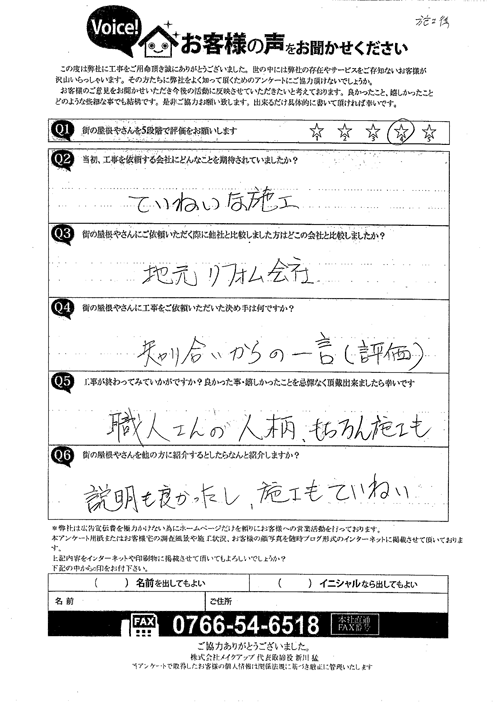 施工後
Voice!
お客様の声をお聞かせください
この度は弊社に工事をご用命頂き誠にありがとうございました。世の中には弊社の存在やサービスをご存知ないお客様が
沢山いらっしゃいます。その方たちに弊社をよく知って頂くためのアンケートにご協力頂けないでしょうか。
お客様のご意見をお聞かせいただき今後の活動に反映させていただきたいと考えております。良かったこと、嬉しかったこと
どのような些細な事でも結構です。是非ご協力お願い致します。出来るだけ具体的に書いて頂ければ幸いです。
Q1 街の屋根やさんを5段階で評価をお願いします
1 2 3 4 5
Q2 当初、工事を依頼する会社にどんなことを期待されていましたか？
ていねいな施工
Q3 街の屋根やさんにご依頼いただく際に他社と比較しました方はどこの会社と比較しましたか？
地元リフォム会社
Q4 街の屋根やさんに工事をご依頼いただいた決め手は何ですか？
知り合いからの一言(評価)
Q5 工事が終わってみていかがですか？良かった事・嬉しかったことを忌憚なく頂戴出来ましたら幸いです
職人さんの人柄、もちろん施工も
Q6 街の屋根やさんを他の方に紹介するとしたらなんと紹介しますか？
説明も良かったし、施工もていねい
＊弊社は広告宣伝費を極力かけない為にホームページだけを頼りにお客様への営業活動を行っております。
本アンケート用紙またはお客様宅の調査風景や施工状況、お客様の顔写真を随時ブログ形式のインターネットに掲載させて頂いております。
上記内容をインターネットや印刷物に掲載させて頂いてもよろしいでしょうか？
下記の中から○印をお付下さい。
（　）名前を出してもよい （　）イニシャルなら出してもよい
名 前 ご住所
FAX 0766-54-6518 本社直通 FAX番号
ご協力ありがとうございました。
株式会社メイクアップ 代表取締役 新川 猛
当アンケートで取得したお客様の個人情報は関係法規に基づき厳正に管理いたします